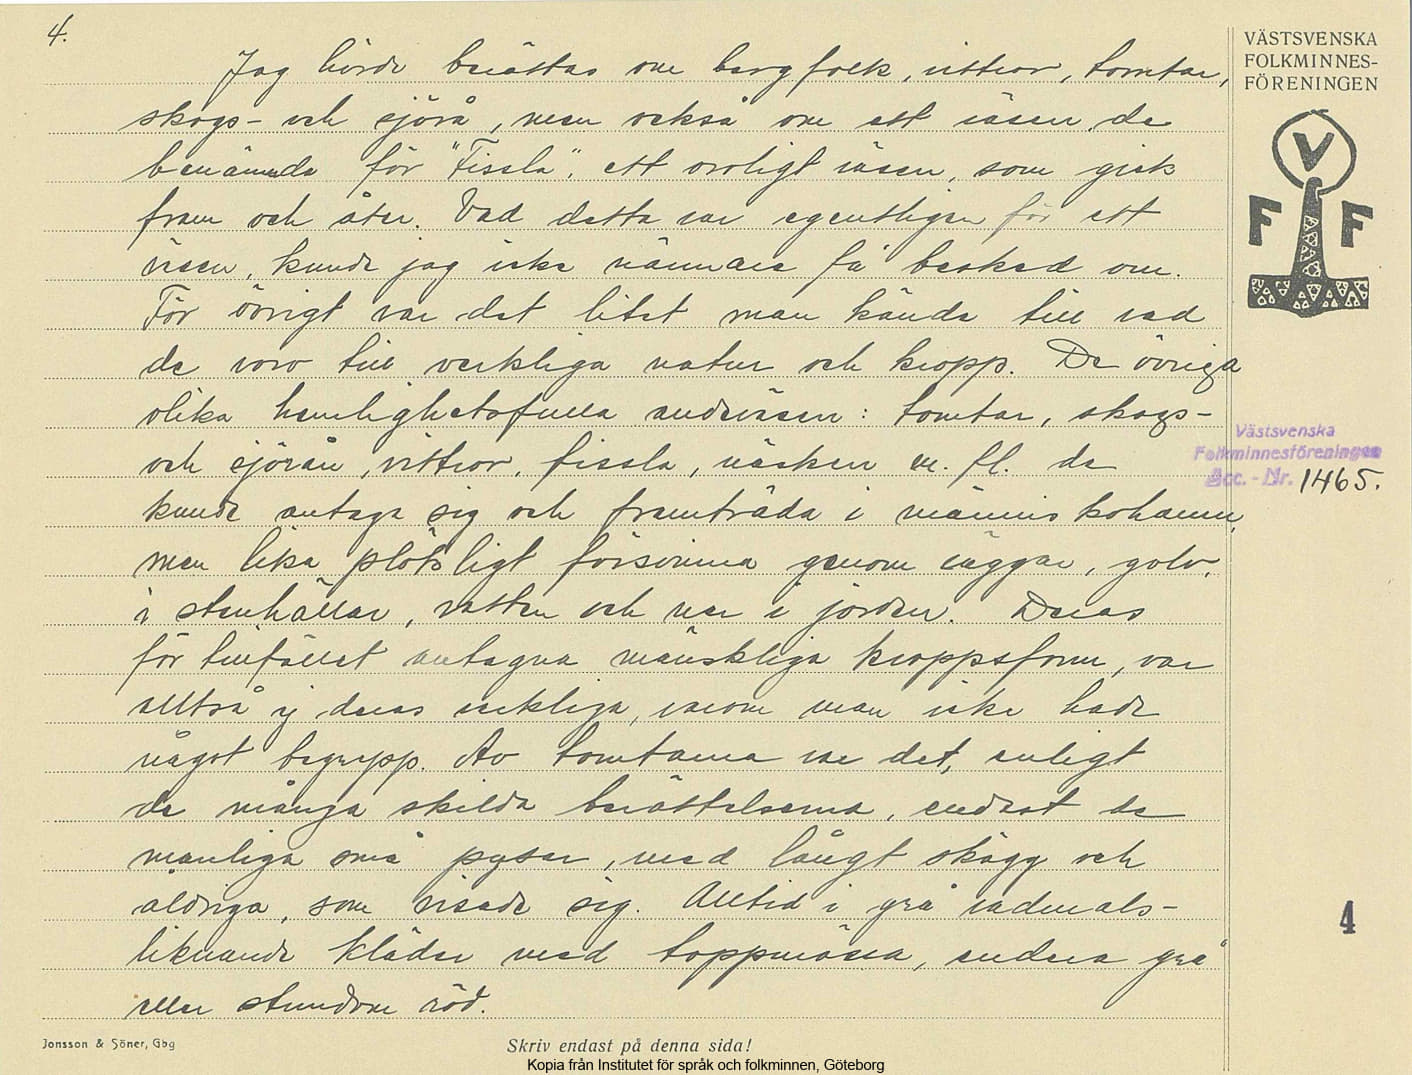 4.
VÄSTSVENSKA
FOLKMINNES-
FÖRENINGEN
V
F F
Jag hörde berättas om bergfolk, vittror, tomtar,
skogs- och sjörå, men också om ett väsen de
benämnde för "Fissla", ett oroligt väsen, som gick
fram och åter. Vad detta var egentligen för ett
väsen, kunde jag icke närmare få besked om.
För övrigt var det litet man kände till vad
de voro till verkliga natur och kropp. De övriga
olika hemlighetsfulla andeväsen: tomtar, skogs-
och sjörån, vittror, fissla, näcken m. fl. de
kunde antaga sig och framträda i människohamn,
men lika plötsligt försvinna genom väggar, golv,
i stenhällar, vatten och ner i jorden. Deras
för tillfället antagna mänskliga kroppsform, var
alltså ej deras verkliga, varom man icke hade
något begrepp. Av tomtarna var det, enligt
de många skilda berättelserna, endast de
manliga små pysar, med långt skägg och
åldriga, som visade sig. Alltid i grå vadmals-
liknande kläder med toppmössa, endera grå
eller stundom röd.
Västsvenska
Folkminnesföreningen
Acc. - Nr. 1465.
4
Jonsson & Söner, Gbg
Skriv endast på denna sida!
Kopia från Institutet för språk och folkminnen, Göteborg